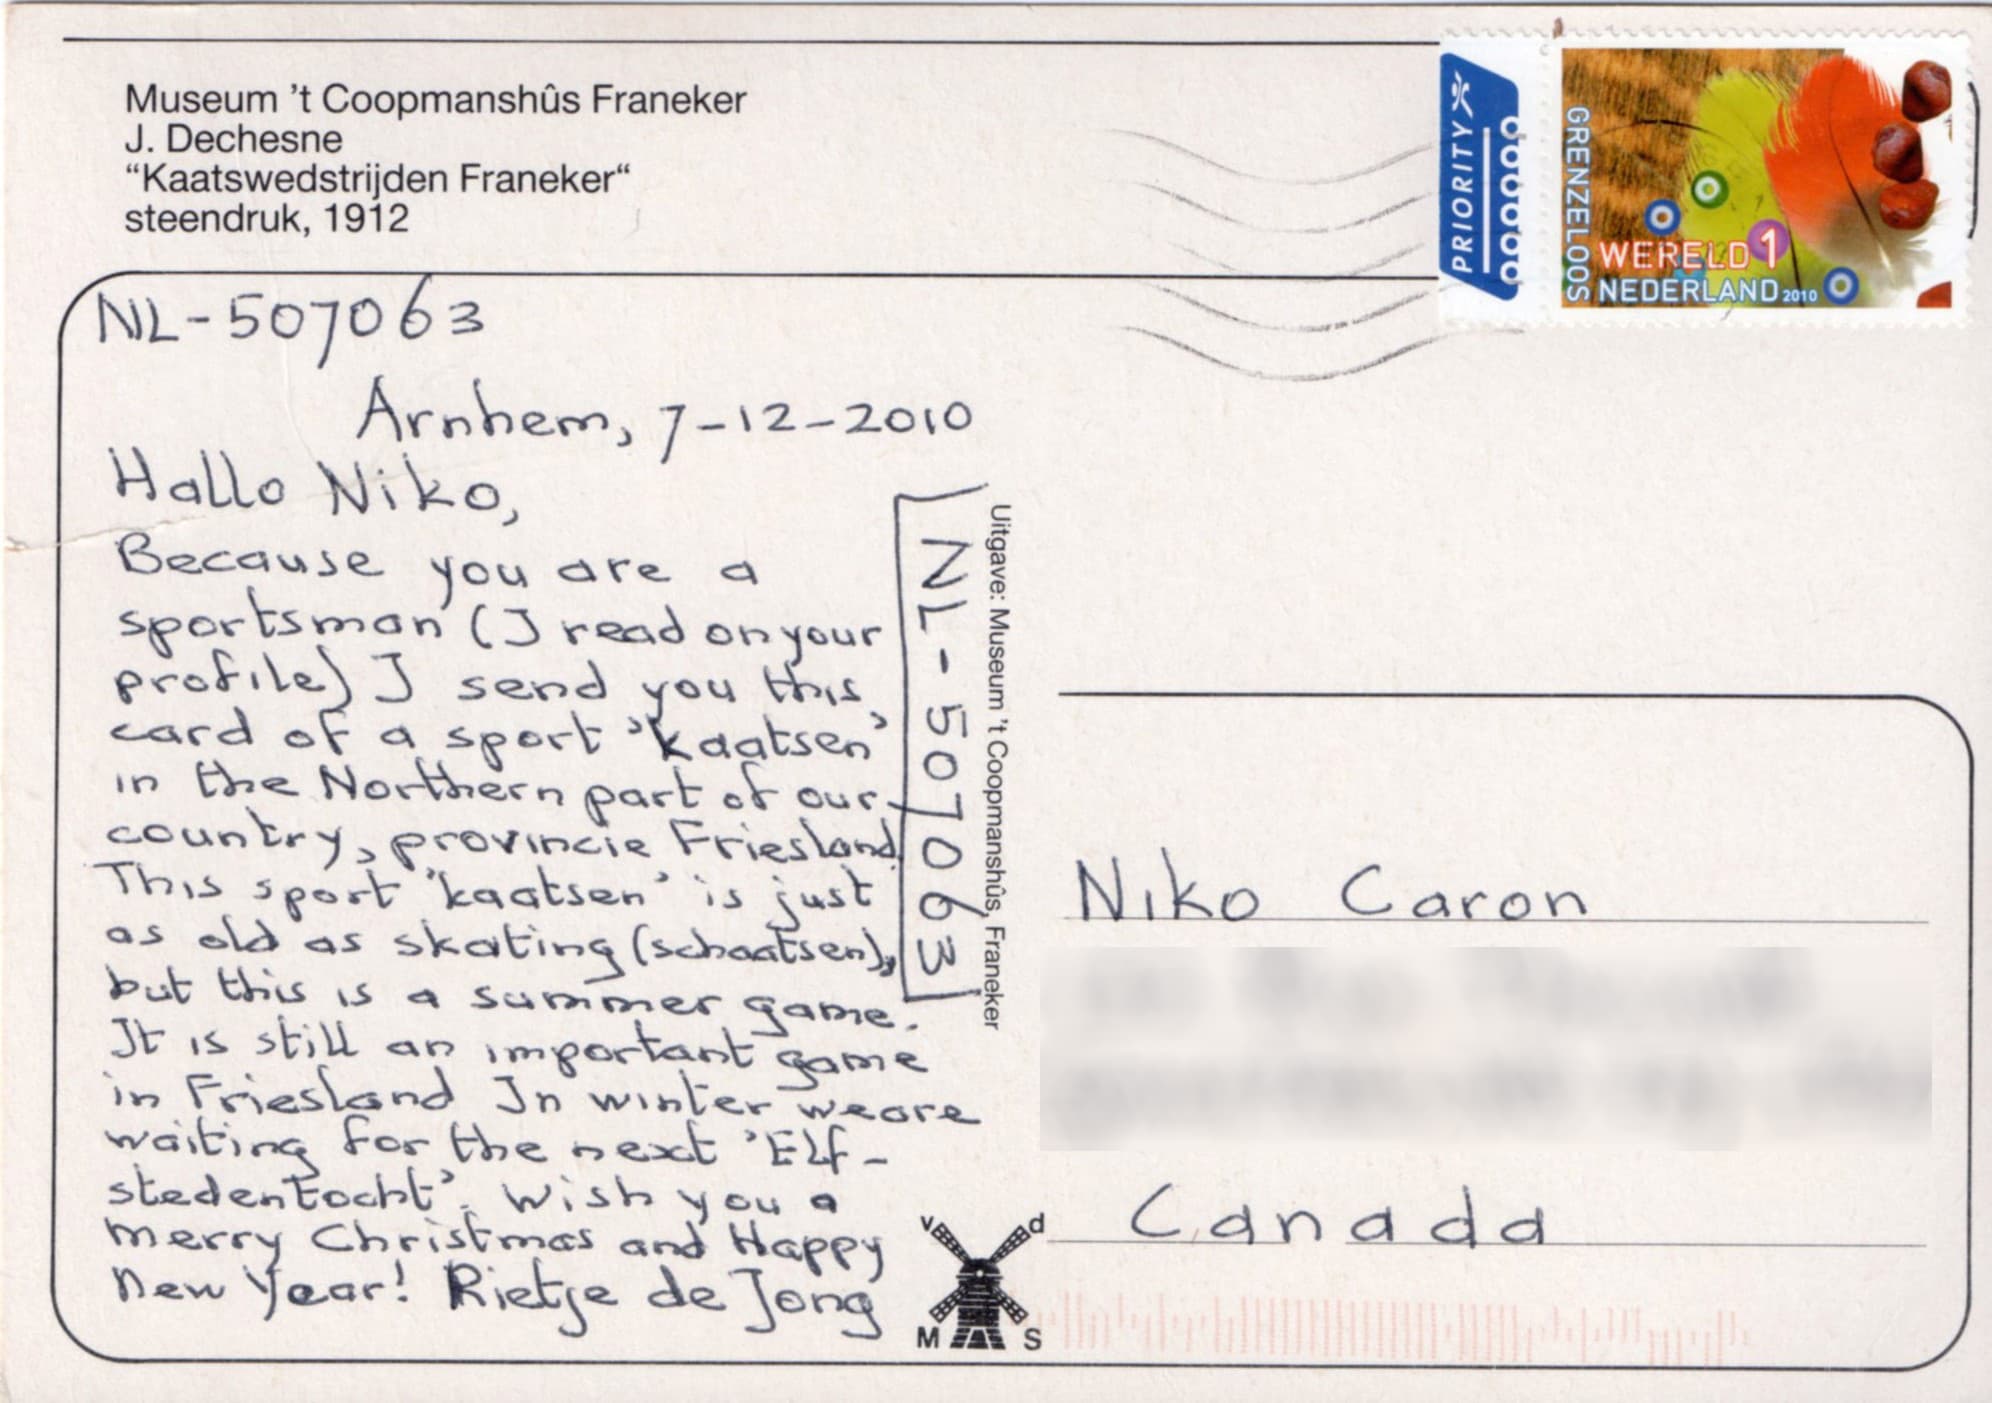 Museum 't Coopmanshûs Franeker
J. Dechesne
“Kaatswedstrijden Franeker“
steendruk, 1912
PRIORITY
GRENZELOOS
WERELD 1
NEDERLAND 2010
NL-507063
Arnhem, 7-12-2010
Hallo Niko,
Because you are a
sportsman (I read on your
profile) I send you this
card of a sport 'kaatsen'
in the Northern part of our
country, provincie Friesland.
This sport 'kaatsen' is just
as old as skating (schaatsen),
but this is a summer game.
It is still an important game
in Friesland In winter we are
waiting for the next 'Elf-
stedentocht'. Wish you a
merry Christmas and Happy
New Year! Rietje de Jong
NL-507063
Uitgave: Museum 't Coopmanshûs, Franeker
v d
M S
Niko Caron
Canada